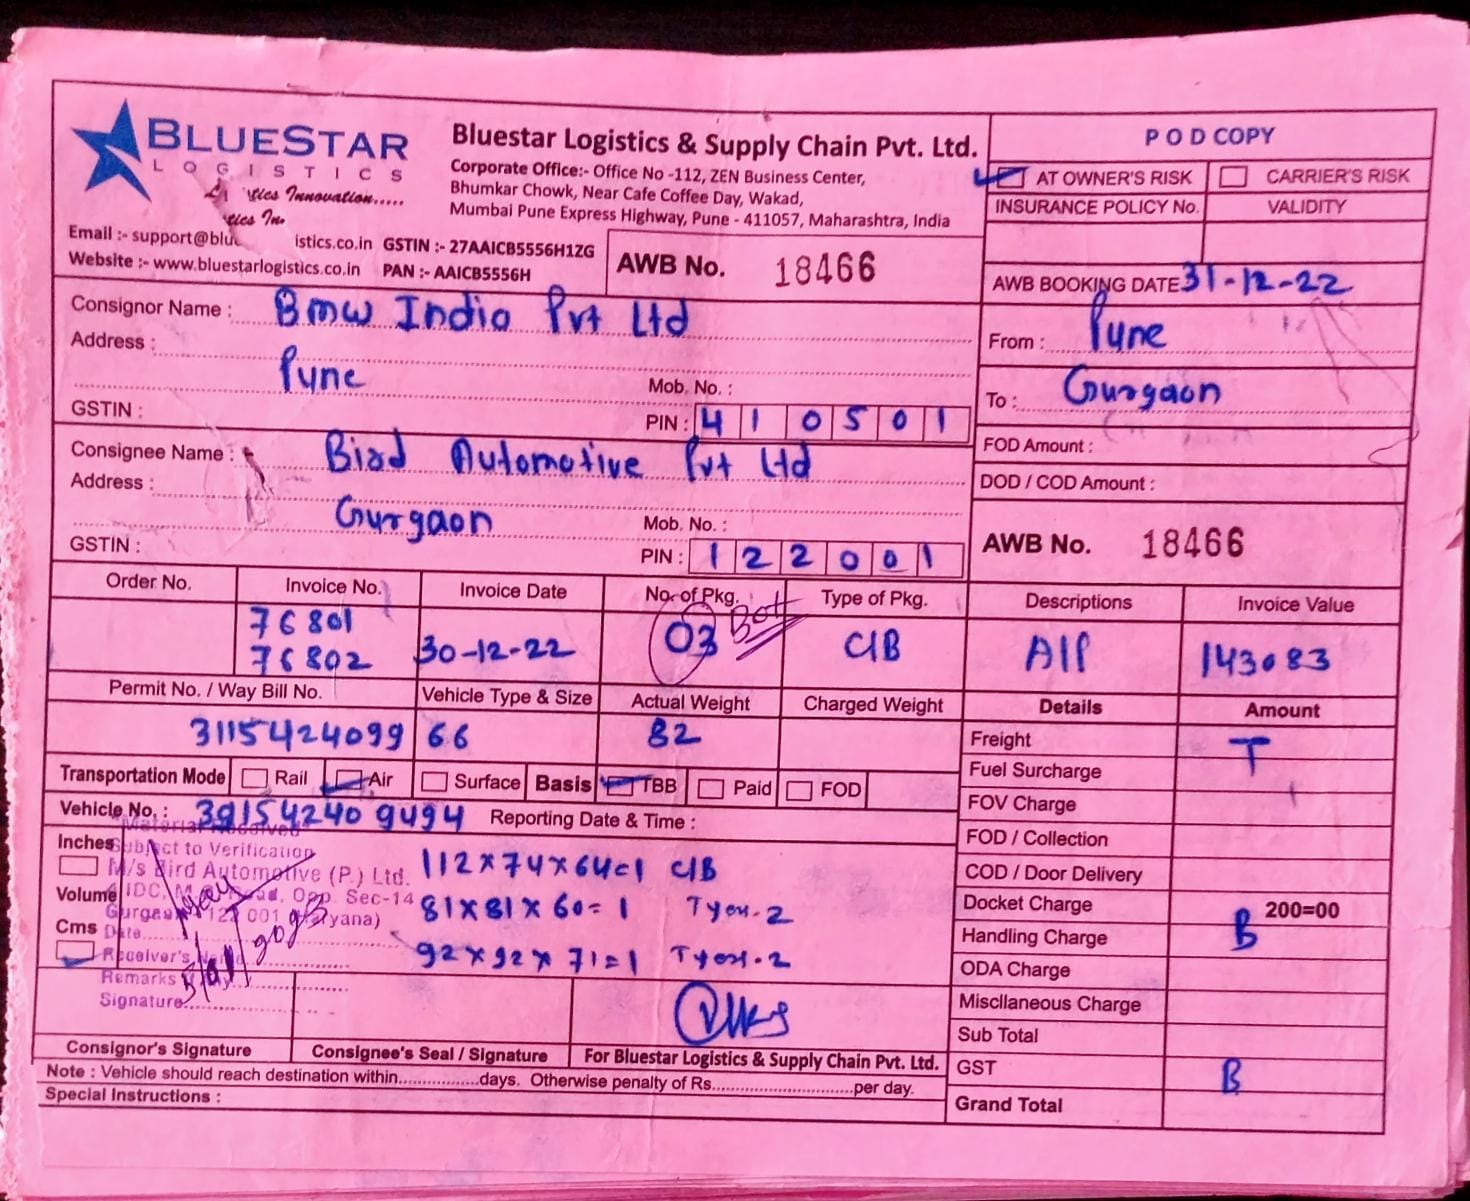 BLUESTAR
LOGISTICS
Bluestar Logistics & Supply Chain Pvt. Ltd.
Corporate Office:- Office No -112, ZEN Business Center,
Bhumkar Chowk, Near Cafe Coffee Day, Wakad,
Mumbai Pune Express Highway, Pune - 411057, Maharashtra, India
tics Innovation.....
tics In
Email :- support@blu istics.co.in GSTIN :- 27AAICB5556H1ZG
Website :- www.bluestarlogistics.co.in PAN :- AAICB5556H
AWB No. 18466
POD COPY
AT OWNER'S RISK CARRIER'S RISK
INSURANCE POLICY No. VALIDITY
AWB BOOKING DATE 31-12-22
Consignor Name : Bmw India Pvt Ltd
Address :
Pune
Mob. No. :
GSTIN :
PIN : 410501
From : Pune
To : Gurgaon
FOD Amount :
DOD / COD Amount :
Consignee Name : Bird Automotive Pvt Ltd
Address :
Gurgaon
Mob. No. :
GSTIN :
PIN : 122001
AWB No. 18466
Order No. Invoice No. Invoice Date No. of Pkg. Type of Pkg. Descriptions Invoice Value
76801
76802 30-12-22 03 Box C/B A/P 143083
Permit No. / Way Bill No. Vehicle Type & Size Actual Weight Charged Weight
3115424099 66 82
Transportation Mode Rail Air Surface Basis TBB Paid FOD
Vehicle No. : 391542409494 Reporting Date & Time :
Inches
Volume
Cms
"Material Received"
Subject to Verification
M/s Bird Automotive (P.) Ltd.
Opp. Sec-14
Gurgaon 122 001
Date
Receiver's Name
Remarks
Signature
112x74x64=1 C/B
81x81x60=1 Tyer-2
92x92x71=1 Tyer-2
Consignor's Signature Consignee's Seal / Signature For Bluestar Logistics & Supply Chain Pvt. Ltd.
Note : Vehicle should reach destination within................days. Otherwise penalty of Rs...........................per day.
Special Instructions :
Details Amount
Freight T
Fuel Surcharge
FOV Charge
FOD / Collection
COD / Door Delivery
Docket Charge 200=00
Handling Charge B
ODA Charge
Miscllaneous Charge
Sub Total
GST B
Grand Total